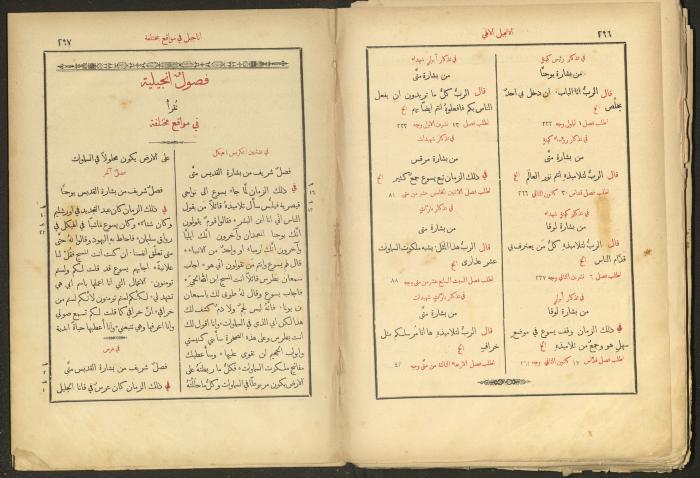 ٢٩٦
الانجيل الالهي
في تذكار رئيس كهنة
من بشارة يوحنا
قال الربُّ انا الباب ان دخل بي احدٌ
يخلص الخ
اطلب فصل ١ ايلول وجه ٢٢٢
في تذكار رؤساء كهنة
من بشارة متَّى
قال الربُّ لتلاميذهِ انتم نور العالم الخ
اطلب فصل قداس ٣٠ كانون الثاني وجه ٢٦٦
في تذكار كهنة شهداء
من بشارة لوقا
قال الربُّ لتلاميذهِ كلُّ مَن يعترف بي
قدَّام الناس الخ
اطلب فصل ٦ تشرين الثاني وجه ٢٣٧
في تذكار أبرار
من بشارة لوقا
في ذلك الزمان وقف يسوع في موضعٍ
سهلٍ هو وجمعٌ من تلاميذهِ الخ
اطلب فصل قداس ١٧ كانون الثاني وجه
في تذكار أبرار شهداء
من بشارة متَّى
قال الربُّ كلُّ ما تريدون ان يفعل
الناس بكم فافعلوهُ انتم ايضًا بهم الخ
اطلب فصل ١٣ تشرين الاول وجه ٢٣٣
في تذكار شهيدات
من بشارة مرقس
في ذلك الزمان تبع يسوع جمعٌ كثير الخ
اطلب فصل الاثنين الخامس عشر من متى ٨١
في تذكار بارَّات
من بشارة متَّى
قال الربُّ هذا المثل يشبه ملكوت السماوات
عشر عذارى الخ
اطلب فصل السبت السابع عشر من متى وجه ٨٨
في تذكار بارات شهيدات
من بشارة متَّى
قال الربُّ لتلاميذهِ ها انا مرسلكم مثل
خرافٍ الخ
اطلب فصل الاربعاء الثالثة من متى وجه ٤٠
اناجيل في مواقع مختلفة
٢٩٧
فصولٌ انجيلية
تُقرأُ
في مواقع مختلفة
في تدشين (تكريس) هيكل
فصلٌ شريف من بشارة القديس متَّى
في ذلك الزمان لمَّا جاء يسوع الى نواحي
قيصرية فيلبس سأل تلاميذهُ قائلاً مَن يقول
الناس اني انا ابن البشر* فقالوا قومٌ يقولون
انَّك يوحنا المعمدان وآخرون انَّك ايليَّا
وآخرون انَّك ارمياء او واحدٌ من الانبياء*
قال لهم يسوع وانتم مَن تقولون اني هو* اجاب
سمعان بطرس قائلاً انت المسيح ابن الله الحي*
فاجاب يسوع وقال لهُ طوبى لك يا سمعان
بن يونا* فانَّهُ ليس لحمٌ ولا دمٌ كشف لك
هذا لكن ابي الذي في السماوات* وانا اقول لك
انت بطرس وعلى هذه الصخرة سأبني كنيستي
وابواب الجحيم لن تقوى عليها* وسأعطيك
مفاتيح ملكوت السماوات* فكلُّ ما ربطتهُ على
الارض يكون مربوطًا في السماوات وكلُّ ما حللتهُ
على الارض يكون محلولاً في السماوات
فصل آخر
فصلٌ شريف من بشارة القديس يوحنا
في ذلك الزمان كان عيد التجديد في اورشليم
وكان شتاء* وكان يسوع ماشيًا في الهيكل في
رواق سليمان* فاحاط بهِ اليهود وقالوا لهُ حتَّى
متى تعلّق انفسنا* ان كنت انت المسيح فقل لنا
علانيةً* اجابهم يسوع قد قلت لكم ولستم
تؤمنون* الاعمال التي انا اعملها باسم ابي هي
تشهد لي* لكنَّكم لستم تؤمنون لانَّكم لستم من
خرافي* انَّ خرافي كما قلت لكم تسمع صوتي
وانا اعرفها وهي تتبعني* وانا أعطيها حياةً ابدية
في عرس
فصلٌ شريف من بشارة القديس متَّى
في ذلك الزمان كان عرسٌ في قانا الجليل